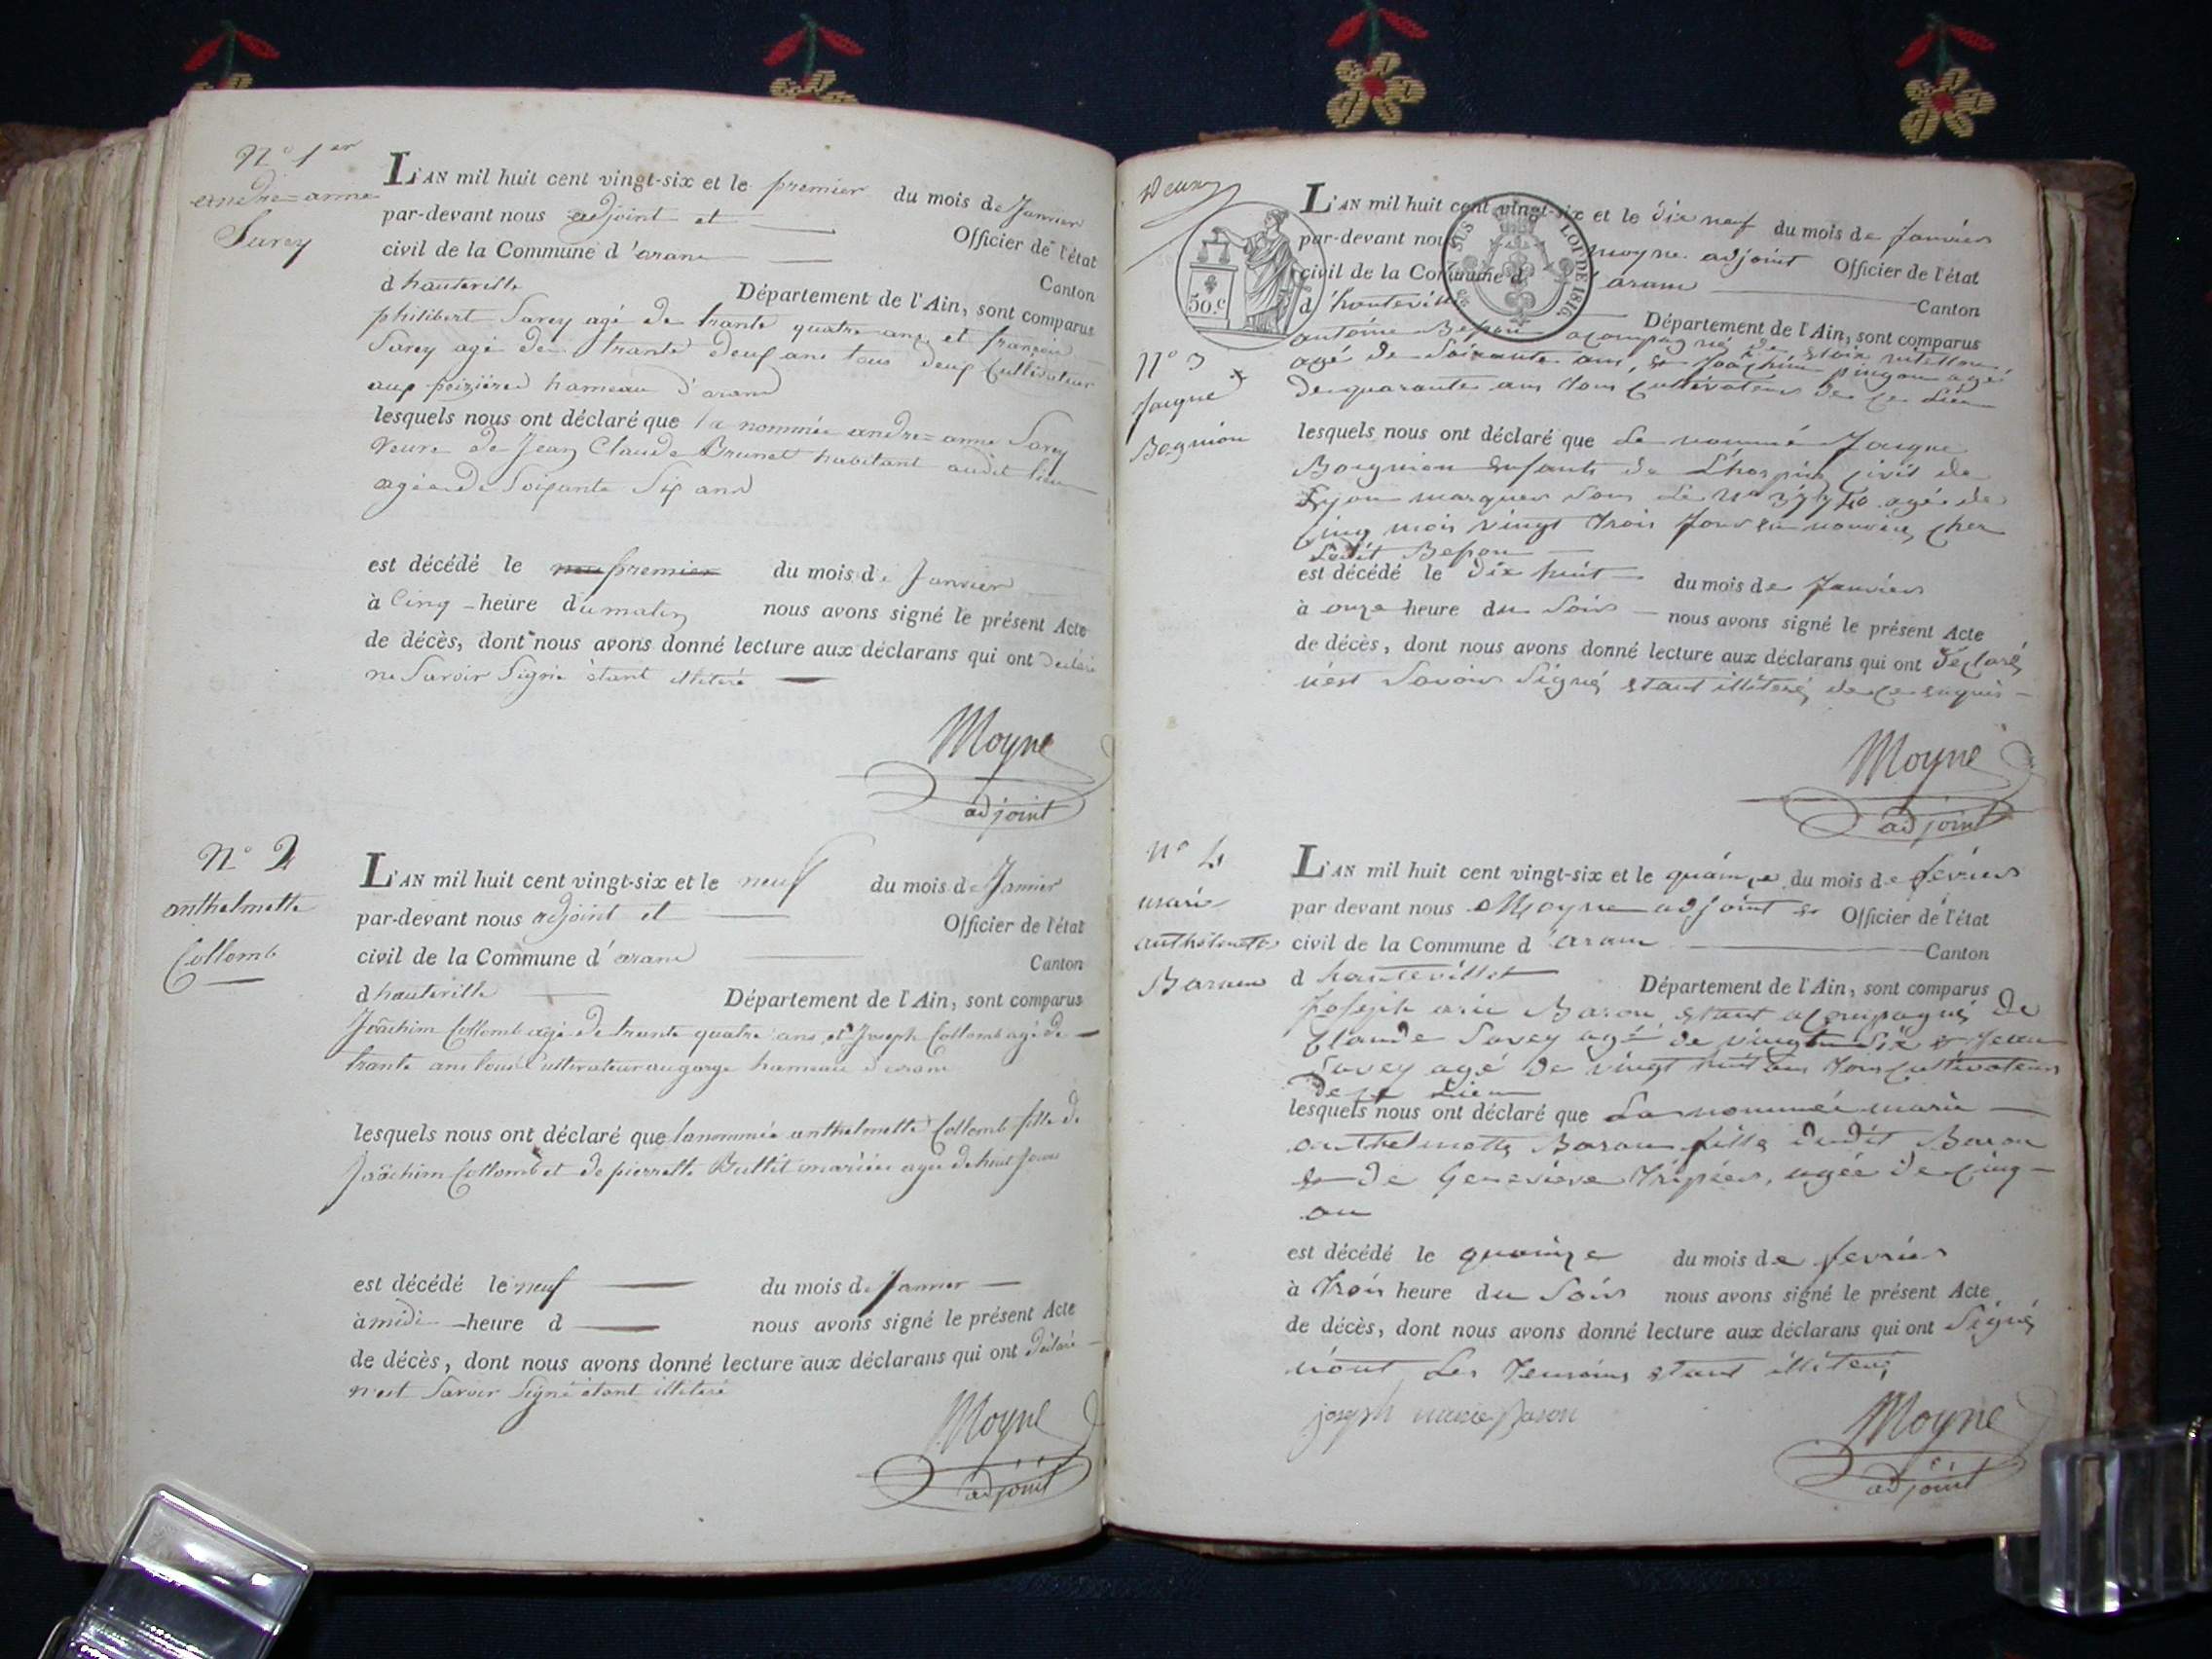 N° 1er
andré=anne
Savey
L'AN mil huit cent vingt-six et le premier du mois de Janvier
par-devant nous adjoint et Officier de l'état
civil de la Commune d'aranc Canton
d hauteville Département de l'Ain, sont comparus
philibert Savey agé de trante quatre ans et françois
Savey agé de trante deux ans tous deux Cultivateur
aux pezières hameau d'aranc
lesquels nous ont déclaré que la nommée andré=anne Savey
veuve de Jean Claude Brunet habitant audit lieu
agée de Soixante Six ans
est décédé le premier du mois de Janvier
à Cinq heure du matin nous avons signé le présent Acte
de décès, dont nous avons donné lecture aux déclarans qui ont déclaré
ne Savoir Signé étant illitéré
Moyne
adjoint
N° 2
anthelmette
Collomb
L'AN mil huit cent vingt-six et le neuf du mois de Janvier
par-devant nous adjoint et Officier de l'état
civil de la Commune d'aranc Canton
d hauteville Département de l'Ain, sont comparus
Joâchim Collomb agé de trente quatre ans et Joseph Collomb agé de
trante ans tous Cultivateur au gorge hameau d'aranc
lesquels nous ont déclaré que la nommée anthelmette Collomb fille de
Joâchim Collomb et de pierrette mariée agée de huit Jours
est décédé le neuf du mois de Janvier
à midi heure d nous avons signé le présent Acte
de décès, dont nous avons donné lecture aux déclarans qui ont déclaré
n'est Savoir Signé étant illitéré
Moyne
adjoint
50.c
LOI DE 1816
L'AN mil huit cent vingt-six et le dix neuf du mois de Janvier
par-devant nous Moyne adjoint Officier de l'état
civil de la Commune d'aranc Canton
d'hauteville Département de l'Ain, sont comparus
N° 3
Jacque
Bognion
antoine Besson acompagné de
agé de Soixante ans, et Joachim pingon agé
de quarante ans tous Cultivateurs de ce Lieu
lesquels nous ont déclaré que Le nommé Jacque
Bognion enfants de L'hospice Civil de
Lyon marquer Sous Le N° agé de
Cinq mois vingt trois Jours en nourice cher
Ledit Besson
est décédé le dix huit du mois de Janvier
à onze heure du Soir nous avons signé le présent Acte
de décès, dont nous avons donné lecture aux déclarans qui ont déclaré
n'est Savoir Signé étant illiteré de ce enquis
Moyne
adjoint
N° 4
marie
anthelmette
Baron
L'AN mil huit cent vingt-six et le quainze du mois de février
par devant nous Moyne adjoint et Officier de l'état
civil de la Commune d'aranc Canton
d hauteville Département de l'Ain, sont comparus
Joseph Baron étant acompagné de
Claude Savey agé de vingt Six et Jean
Savey agé de vingt huit ans tous Cultivateurs
de ce Lieu
lesquels nous ont déclaré que La nommée marie
anthelmette Baron fille dudit Baron
et de Geneviève Tripier, agée de Cinq
an
est décédé le quainze du mois de fevrier
à trois heure du Soir nous avons signé le présent Acte
de décès, dont nous avons donné lecture aux déclarans qui ont Signé
n'ont Les Temoins étant illiteré
joseph marie Baron
Moyne
adjoint